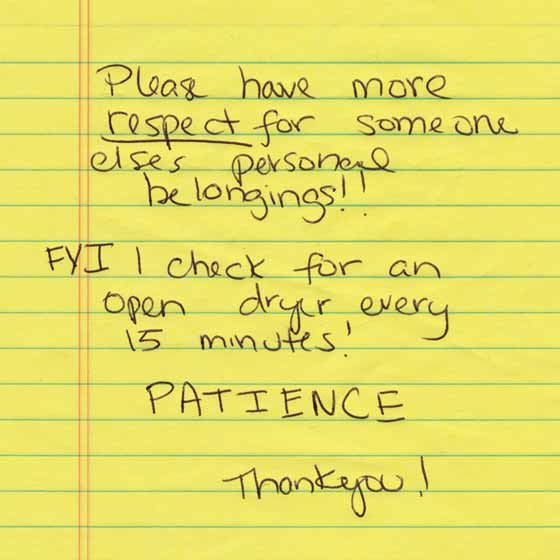 Please have more
respect for someone
elses personal
belongings!!
FYI I check for an
open dryer every
15 minutes!
PATIENCE
Thankyou!